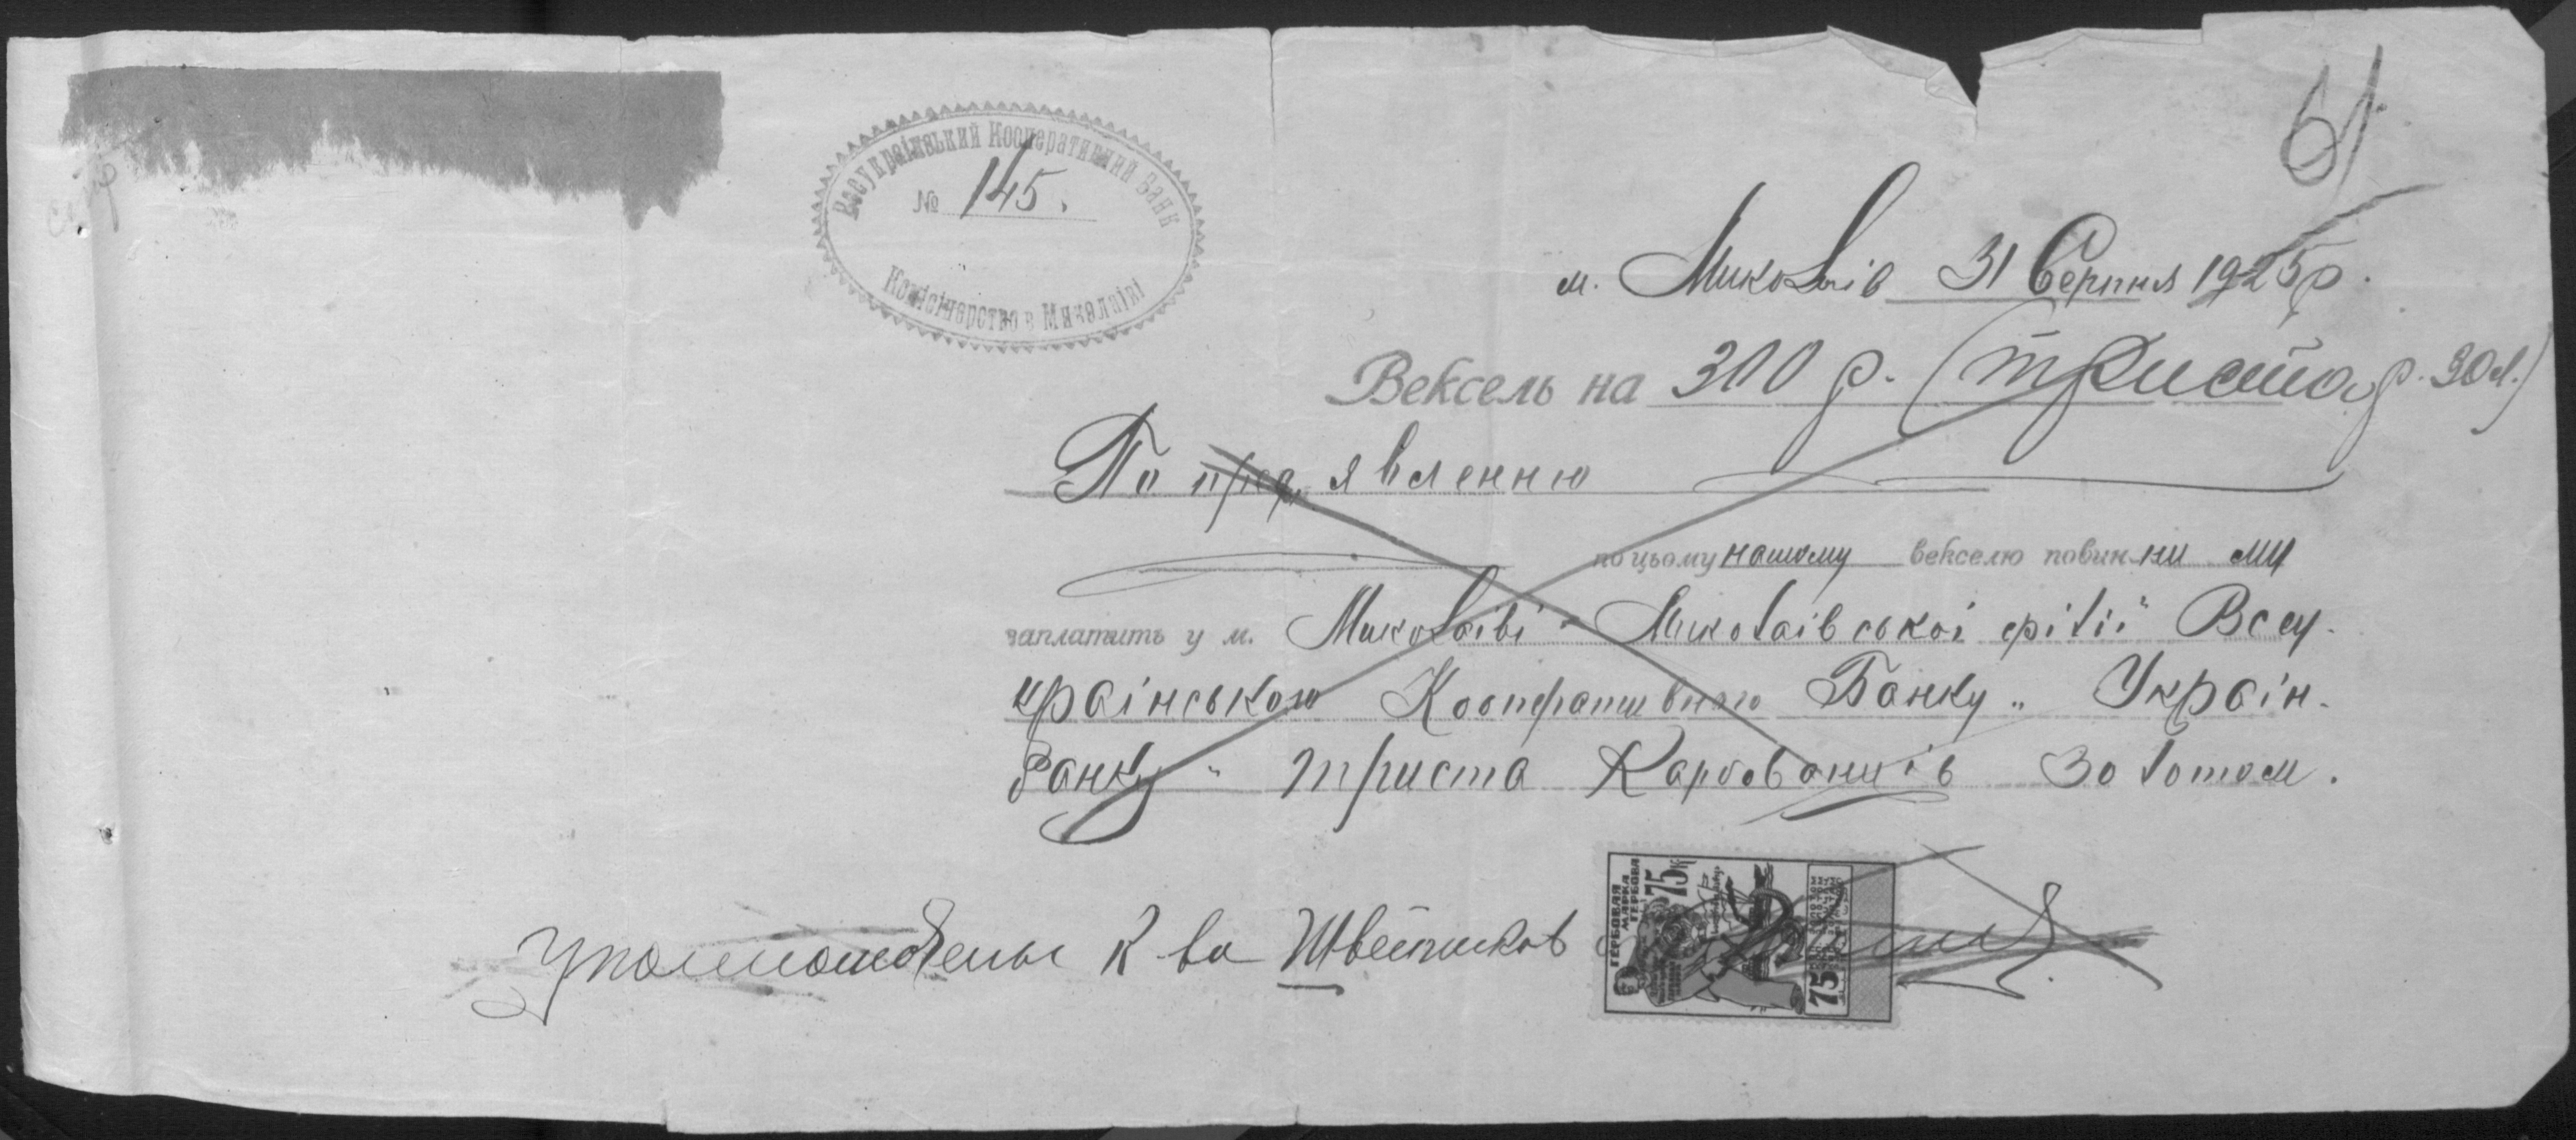 61
Всеукраїнський Кооперативний Банк
№ 145.
Комісінерство в Миколаїві
м. Миколаїв 31 Серпня 1925 р.
Вексель на 300 р. (триста р. зол.)
По пред'явленню
по цьому нашому векселю повинни ми
заплатить у м. Миколаїві Миколаївськоі філіі Всеу-
країнського Кооперативного Банку „Україн-
банку" триста Карбованців золотом.
Уполномочены К-ва Швейников
ГЕРБОВАЯ МАРКА ГЕРБОВА
75к
75